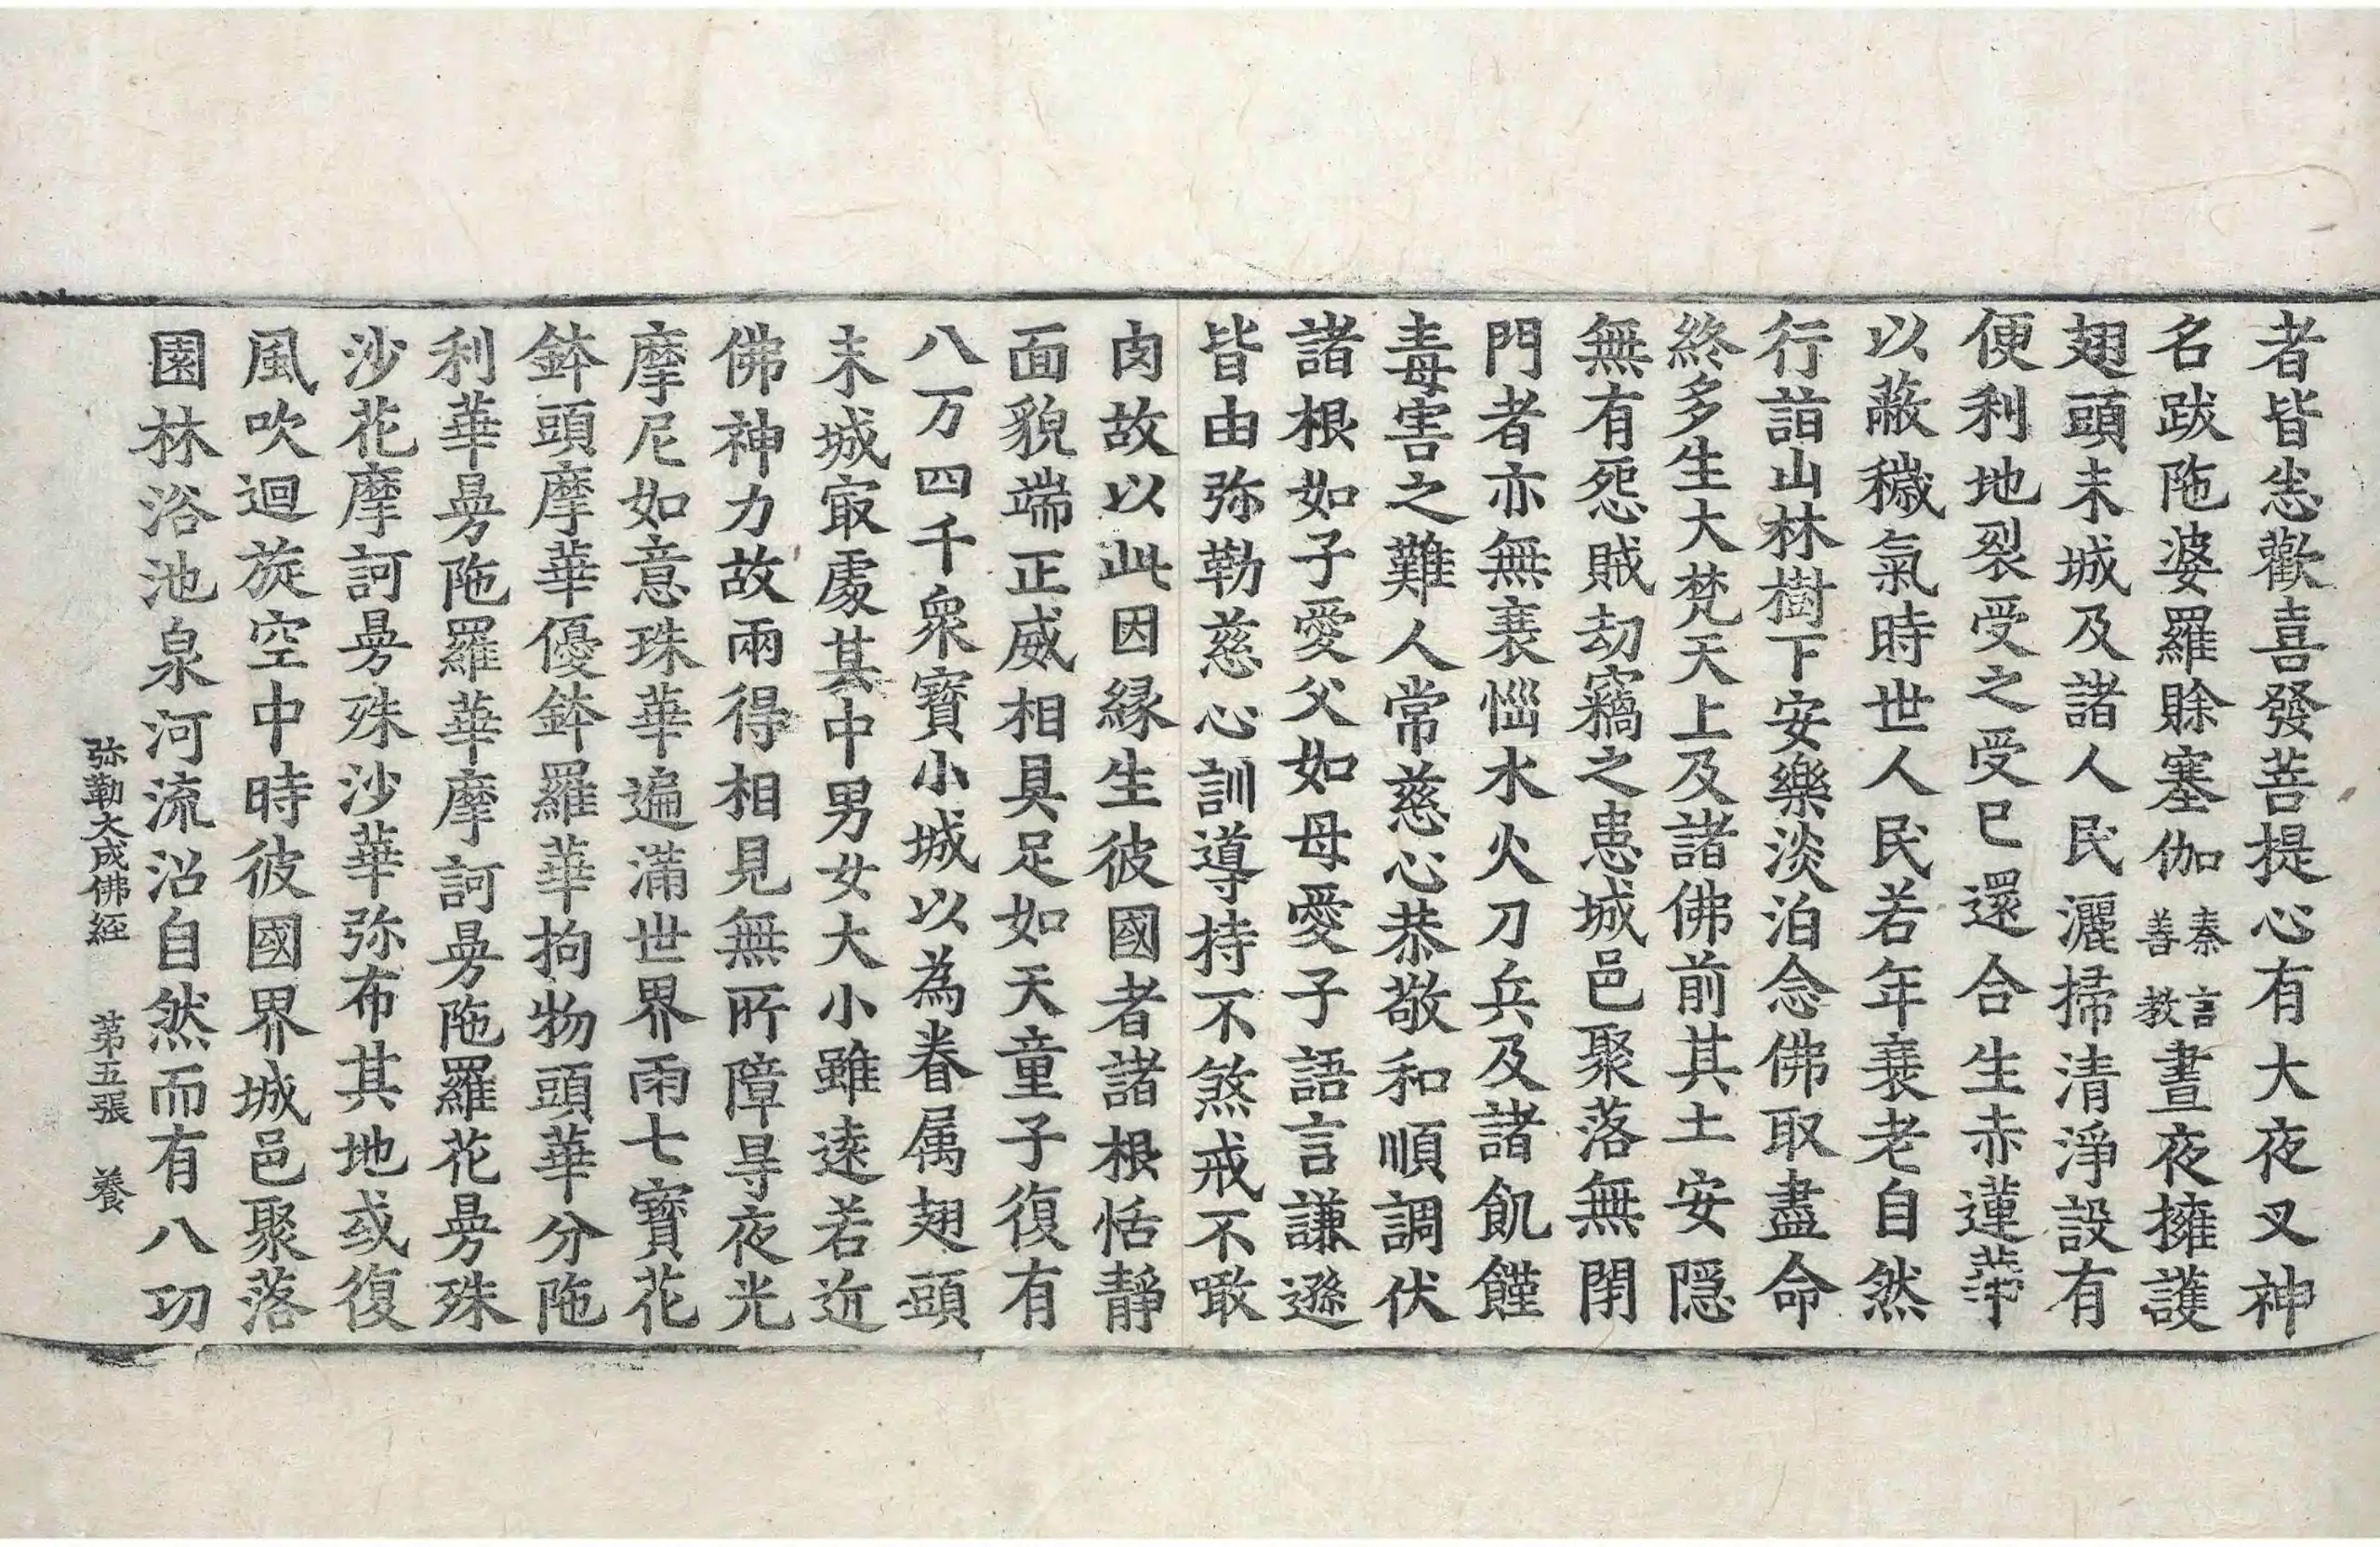 者皆悉歡喜發菩提心有大夜叉神
名跋陁婆羅賖塞伽秦言善教晝夜擁護
翅頭末城及諸人民灑掃清淨設有
便利地裂受之受已還合生赤蓮華
以蔽穢氣時世人民若年衰老自然
行詣山林樹下安樂淡泊念佛取盡命
終多生大梵天上及諸佛前其土安隱
無有怨賊劫竊之患城邑聚落無閇
門者亦無衰惱水火刀兵及諸飢饉
毒害之難人常慈心恭敬和順調伏
諸根如子愛父如母愛子語言謙遜
皆由弥勒慈心訓導持不煞戒不噉
肉故以此因緣生彼國者諸根恬靜
面貌端正威相具足如天童子復有
八万四千衆寶小城以為眷属翅頭
末城㝡處其中男女大小雖遠若近
佛神力故兩得相見無所障㝵夜光
摩尼如意珠華遍滿世界雨七寶花
鉢頭摩華優鉢羅華拘物頭華分陁
利華曼陁羅華摩訶曼陁羅花曼殊
沙花摩訶曼殊沙華弥布其地或復
風吹迴旋空中時彼國界城邑聚落
園林浴池泉河流沼自然而有八功
弥勒大成佛經 第五張 養